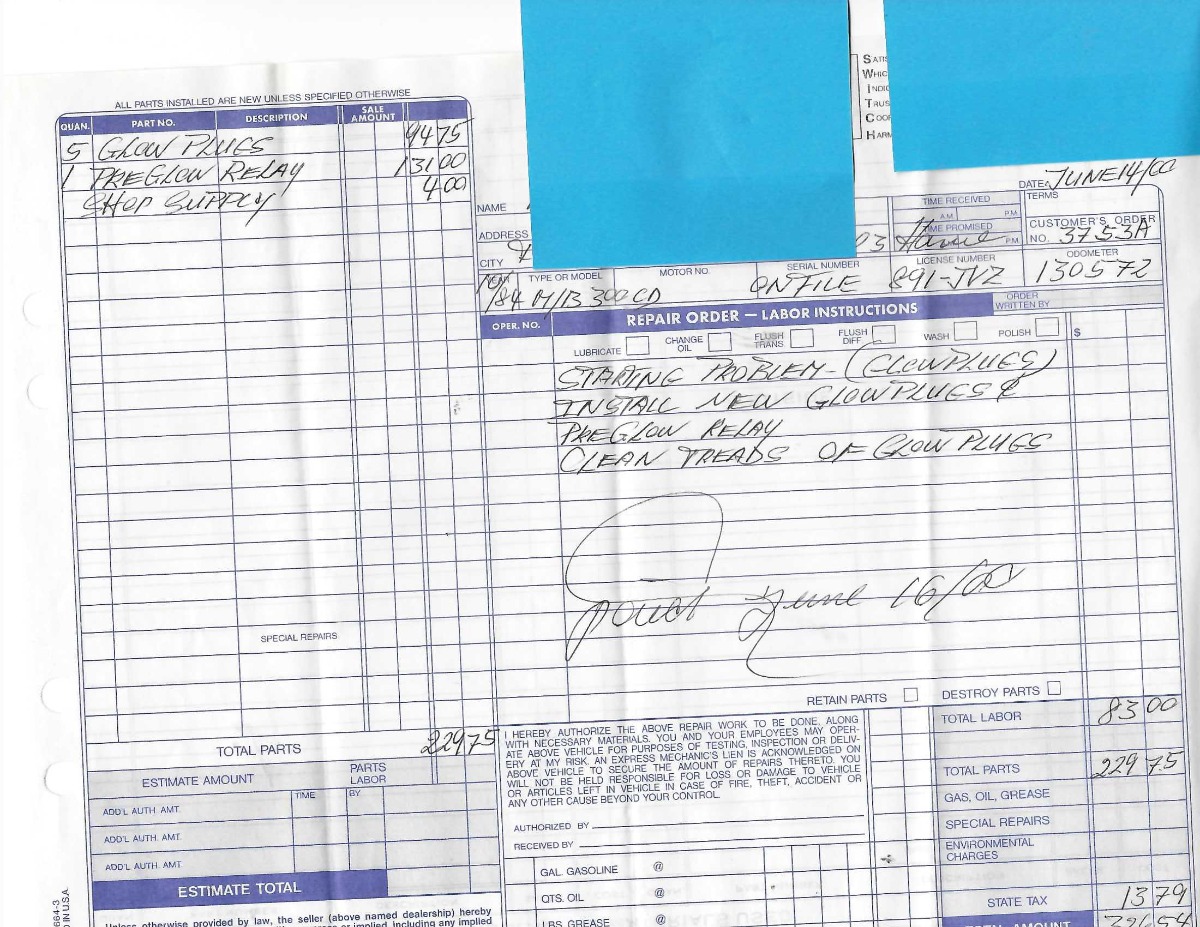 ALL PARTS INSTALLED ARE NEW UNLESS SPECIFIED OTHERWISE
QUAN. PART NO. DESCRIPTION SALE AMOUNT
5 GLOW PLUGS 94 75
1 PREGLOW RELAY 131 00
SHOP SUPPLY 4 00
SPECIAL REPAIRS
TOTAL PARTS 229 75
ESTIMATE AMOUNT PARTS LABOR
ADD'L AUTH. AMT. TIME BY
ADD'L AUTH. AMT.
ADD'L AUTH. AMT
ESTIMATE TOTAL
Unless otherwise provided by law, the seller (above named dealership) hereby
664-3
D IN U.S.A.
S
W
I
T
C
H
DATE JUNE 14/00
NAME
TIME RECEIVED A.M. P.M.
TERMS
ADDRESS
TIME PROMISED P.M.
CUSTOMER'S ORDER NO. 3753A
CITY
YEAR TYPE OR MODEL MOTOR NO. SERIAL NUMBER LICENSE NUMBER ODOMETER
'84 M/B 300 CD ON FILE 891-JVZ 130572
OPER. NO. REPAIR ORDER — LABOR INSTRUCTIONS
ORDER WRITTEN BY
LUBRICATE CHANGE OIL FLUSH TRANS FLUSH DIFF. WASH POLISH $
STARTING PROBLEM - (GLOWPLUGS)
INSTALL NEW GLOWPLUGS &
PREGLOW RELAY
CLEAN TREADS OF GLOW PLUGS
June 16/00
RETAIN PARTS DESTROY PARTS
I HEREBY AUTHORIZE THE ABOVE REPAIR WORK TO BE DONE, ALONG
WITH NECESSARY MATERIALS. YOU AND YOUR EMPLOYEES MAY OPER-
ATE ABOVE VEHICLE FOR PURPOSES OF TESTING, INSPECTION OR DELIV-
ERY AT MY RISK. AN EXPRESS MECHANIC'S LIEN IS ACKNOWLEDGED ON
ABOVE VEHICLE TO SECURE THE AMOUNT OF REPAIRS THERETO. YOU
WILL NOT BE HELD RESPONSIBLE FOR LOSS OR DAMAGE TO VEHICLE
OR ARTICLES LEFT IN VEHICLE IN CASE OF FIRE, THEFT, ACCIDENT OR
ANY OTHER CAUSE BEYOND YOUR CONTROL.
AUTHORIZED BY
RECEIVED BY
GAL. GASOLINE @
QTS. OIL @
LBS GREASE @
TOTAL LABOR 83 00
TOTAL PARTS 229 75
GAS, OIL, GREASE
SPECIAL REPAIRS
ENVIRONMENTAL CHARGES
STATE TAX 13 79
AMOUNT 326 54